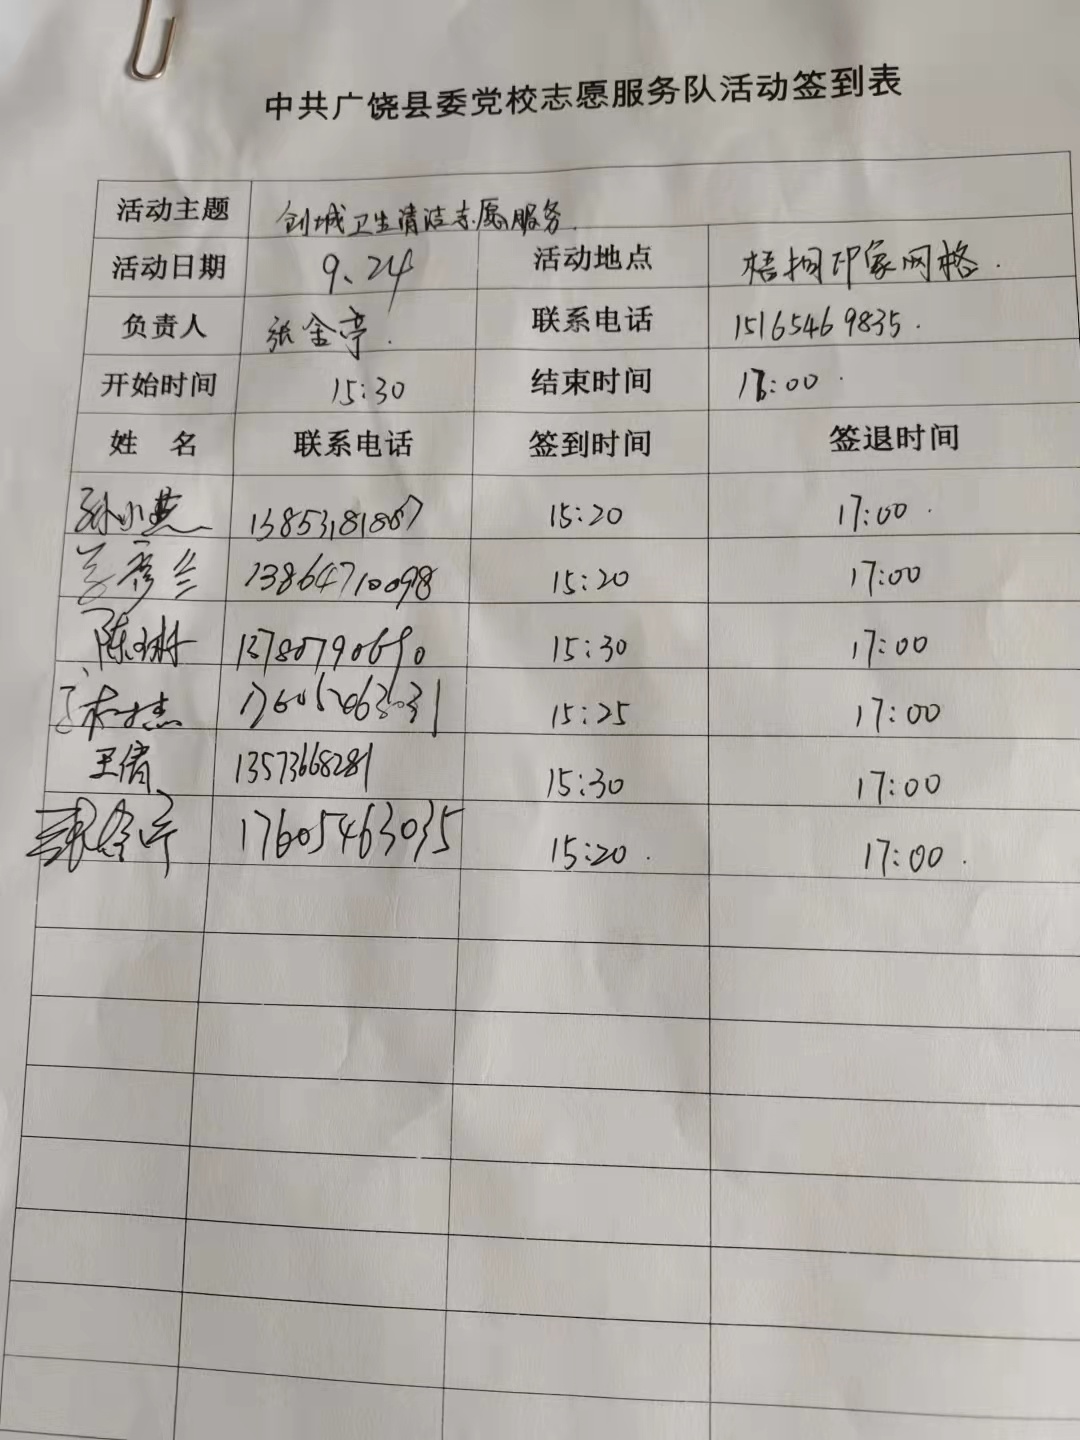 中共广饶县委党校志愿服务队活动签到表
活动主题 创城卫生清洁志愿服务.
活动日期 9、24 活动地点 梧桐印象网格.
负责人 张金亭. 联系电话 15165469835.
开始时间 15:30 结束时间 17:00.
姓 名 联系电话 签到时间 签退时间
孙小燕 13853181867 15:20 17:00.
彦兰 13864710098 15:20 17:00
陈琳 13780790690 15:30 17:00
176052063031 15:25 17:00
王倩 13573668281 15:30 17:00
张金亭 17605463035 15:20. 17:00.